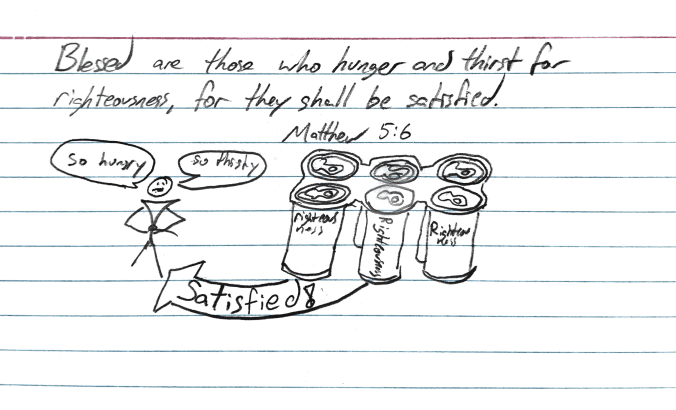 Blessed are those who hunger and thirst for
righteousness, for they shall be satisfied.
Matthew 5:6
So hungry
so thirsty
righteous
ness
Righteousness
Righteous
ness
Satisfied!